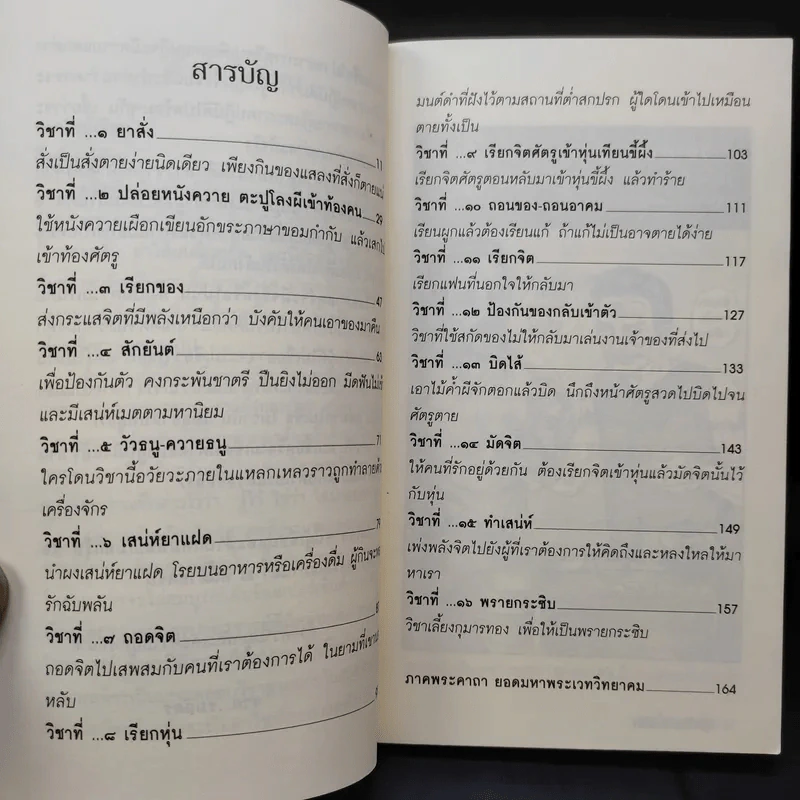 สารบัญ
วิชาที่ ...๑ ยาสั่ง 11
สั่งเป็นสั่งตายง่ายนิดเดียว เพียงกินของแสลงที่สั่งก็ตายแน่
วิชาที่ ...๒ ปล่อยหนังควาย ตะปูโลงผีเข้าท้องคน 29
ใช้หนังควายเผือกเขียนอักขระภาษาขอมกำกับ แล้วเสกไป
เข้าท้องศัตรู
วิชาที่ ...๓ เรียกของ 47
ส่งกระแสจิตที่มีพลังเหนือกว่า บังคับให้คนเอาของมาคืน
วิชาที่ ...๔ สักยันต์ 60
เพื่อป้องกันตัว คงกระพันชาตรี ปืนยิงไม่ออก มีดฟันไม่เข้า
และมีเสน่ห์เมตตามหานิยม
วิชาที่ ...๕ วัวธนู-ควายธนู 71
ใครโดนวิชานี้อวัยวะภายในแหลกเหลวราวถูกทำลายด้วย
เครื่องจักร
วิชาที่ ...๖ เสน่ห์ยาแฝด 79
นำผงเสน่ห์ยาแฝด โรยบนอาหารหรือเครื่องดื่ม ผู้กินจะ
รักฉับพลัน
วิชาที่ ...๗ ถอดจิต
ถอดจิตไปเสพสมกับคนที่เราต้องการได้ ในยามที่เขา
หลับ
วิชาที่ ...๘ เรียกหุ่น
มนต์ดำที่ฝังไว้ตามสถานที่ต่ำสกปรก ผู้ใดโดนเข้าไปเหมือน
ตายทั้งเป็น
วิชาที่ ...๙ เรียกจิตศัตรูเข้าหุ่นเทียนขี้ผึ้ง 103
เรียกจิตศัตรูตอนหลับมาเข้าหุ่นขี้ผึ้ง แล้วทำร้าย
วิชาที่ ...๑๐ ถอนของ-ถอนอาคม 111
เรียนผูกแล้วต้องเรียนแก้ ถ้าแก้ไม่เป็นอาจตายได้ง่าย
วิชาที่ ...๑๑ เรียกจิต 117
เรียกแฟนที่นอกใจให้กลับมา
วิชาที่ ...๑๒ ป้องกันของกลับเข้าตัว 127
วิชาที่ใช้สกัดของไม่ให้กลับมาเล่นงานเจ้าของที่ส่งไป
วิชาที่ ...๑๓ บิดไส้ 133
เอาไม้ค้ำผีจักตอกแล้วบิด นึกถึงหน้าศัตรูสวดไปบิดไปจน
ศัตรูตาย
วิชาที่ ...๑๔ มัดจิต 143
ให้คนที่รักอยู่ด้วยกัน ต้องเรียกจิตเข้าหุ่นแล้วมัดจิตนั้นไว้
กับหุ่น
วิชาที่ ...๑๕ ทำเสน่ห์ 149
เพ่งพลังจิตไปยังผู้ที่เราต้องการให้คิดถึงและหลงใหลให้มา
หาเรา
วิชาที่ ...๑๖ พรายกระซิบ 157
วิชาเลี้ยงกุมารทอง เพื่อให้เป็นพรายกระซิบ
ภาคพระคาถา ยอดมหาพระเวทวิทยาคม 164